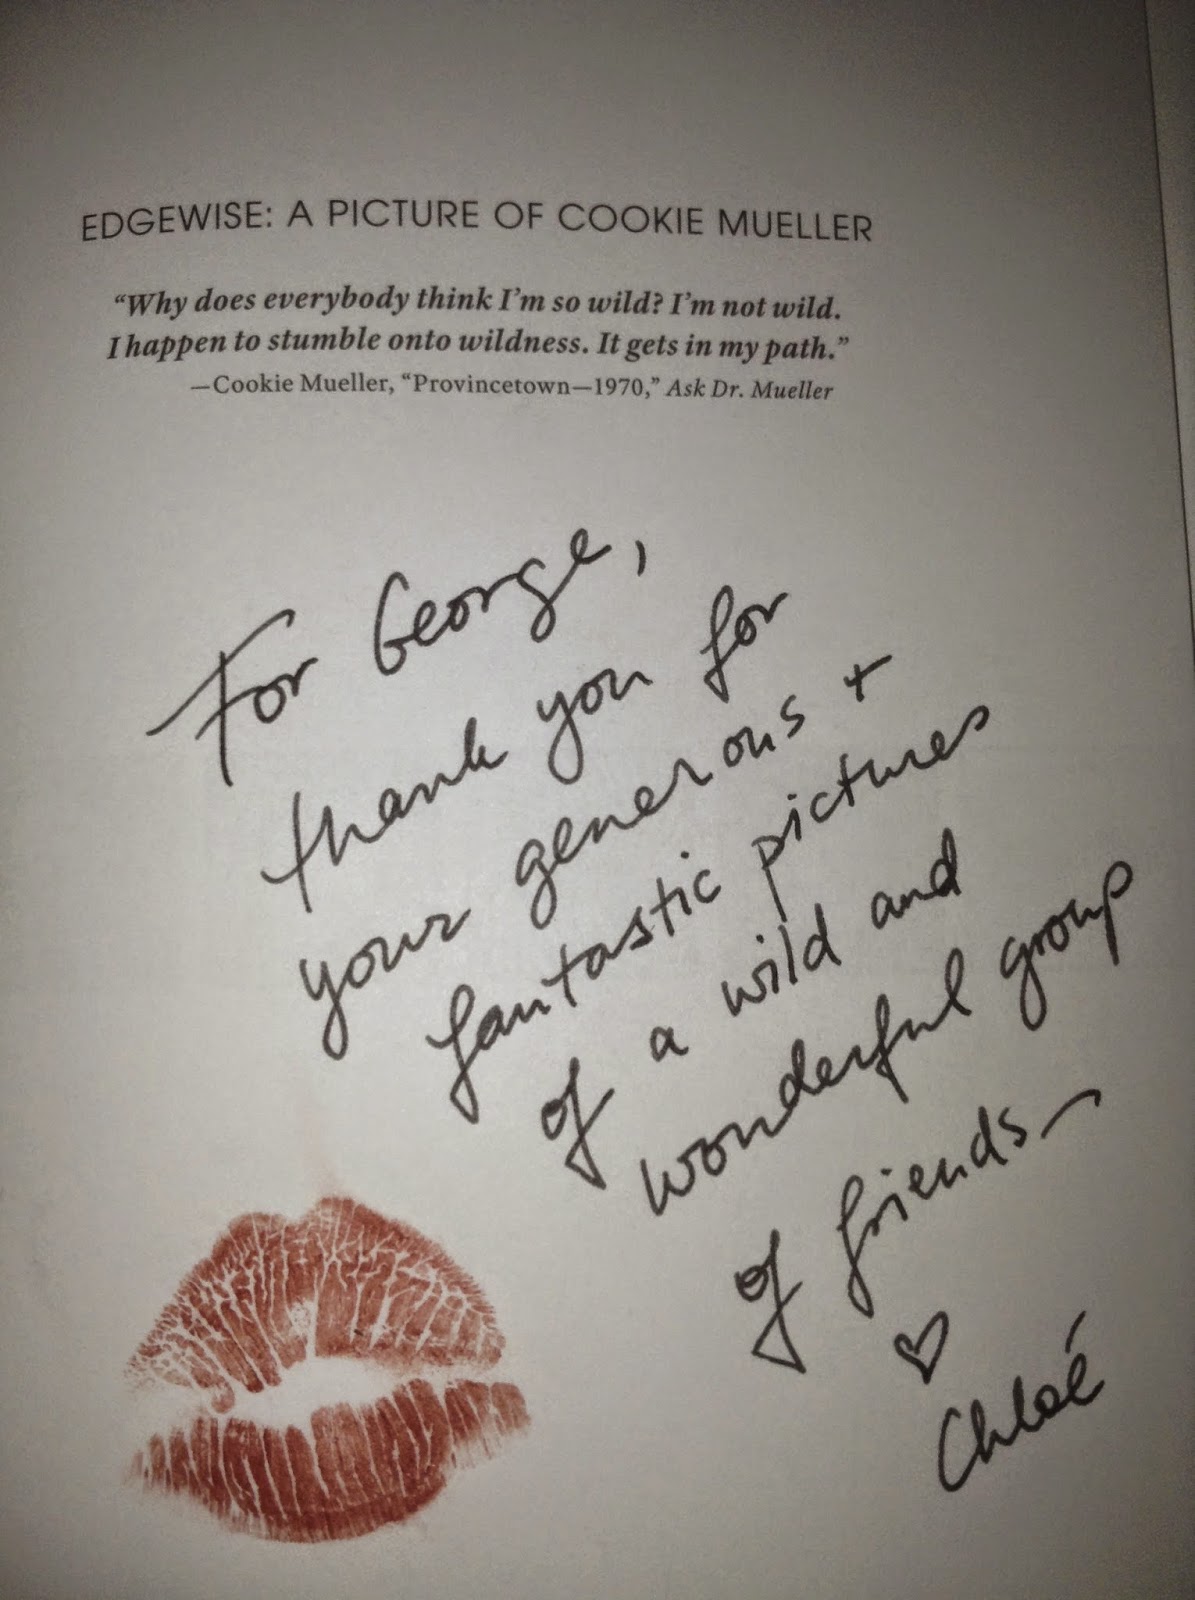 EDGEWISE: A PICTURE OF COOKIE MUELLER
“Why does everybody think I’m so wild? I’m not wild.
I happen to stumble onto wildness. It gets in my path.”
—Cookie Mueller, “Provincetown—1970,” Ask Dr. Mueller
For George,
thank you for
your generous +
fantastic pictures
of a wild and
wonderful group
of friends—
♡
Chloé